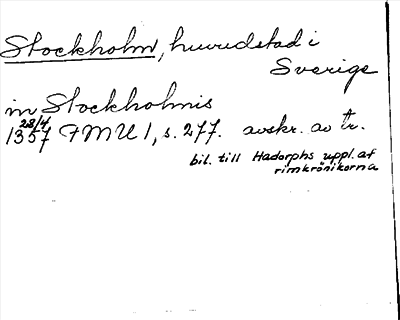 Stockholm, huvudstad i
Sverige
in Stockholmis
28/4
1357 FMU 1, s. 277. avskr. av tr.
bil. till Hadorphs uppl. af
rimkrönikorna